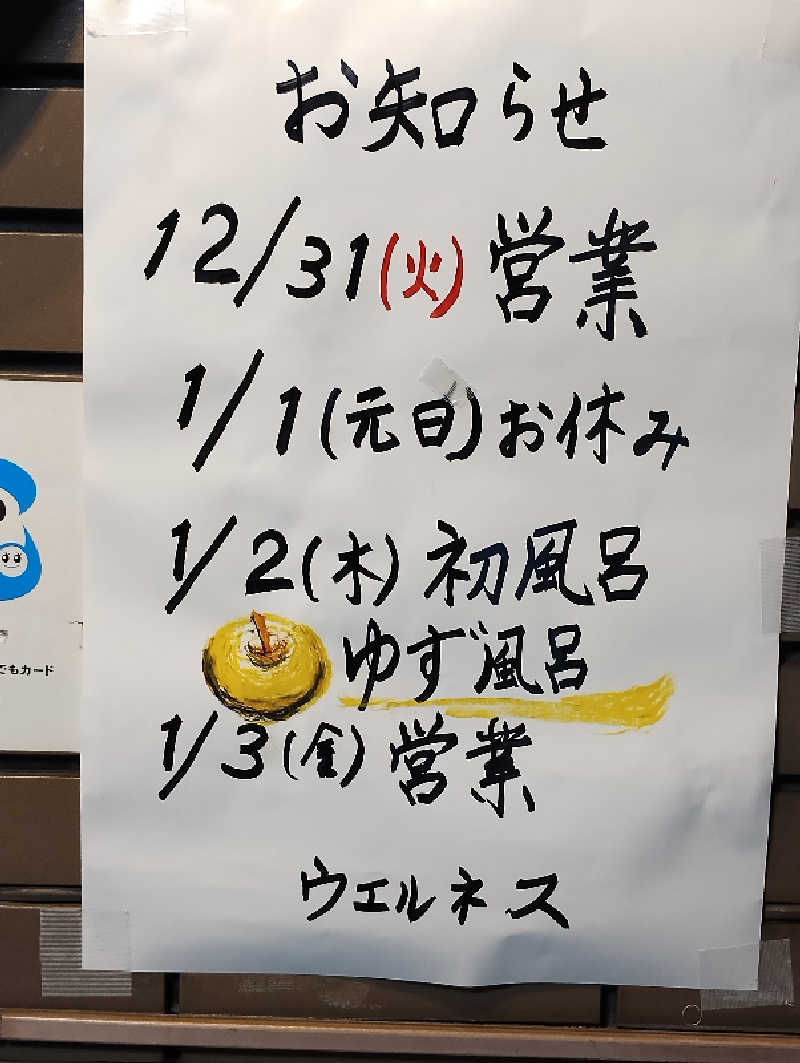 お知らせ
12/31(火)営業
1/1(元旦)お休み
1/2(木)初風呂
ゆず風呂
1/3(金)営業
ウエルネス
でもカード